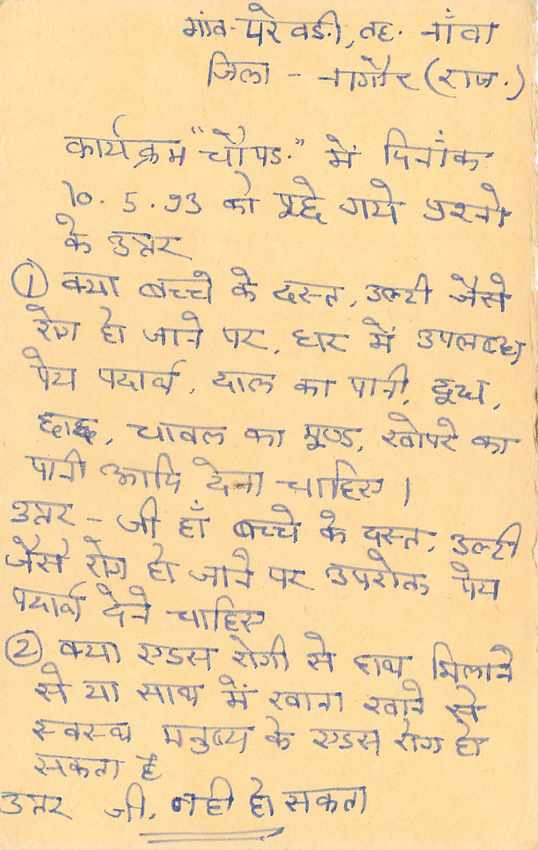 गांव-परेवडी, तह. नाँवा
जिला - नागौर (राज.)
कार्यक्रम "चौपड." में दिनाँक
10. 5. 93 को पूछे गये प्रश्नो
के उत्तर
① क्या बच्चे के दस्त, उल्टी जैसे
रोग हो जाने पर, घर में उपलब्ध
पेय पदार्थ, दाल का पानी, दूध,
छाछ, चावल का मूण्ड, खोपरे का
पानी आदि देना चाहिए।
उत्तर - जी हाँ बच्चे के दस्त, उल्टी
जैसे रोग हो जाने पर उपरोक्त पेय
पदार्थ देने चाहिए
② क्या एडस रोगी से हाथ मिलाने
से या साथ में खाना खाने से
स्वस्थ मनुष्य के एडस रोग हो
सकता है
उत्तर जी, नही हो सकता